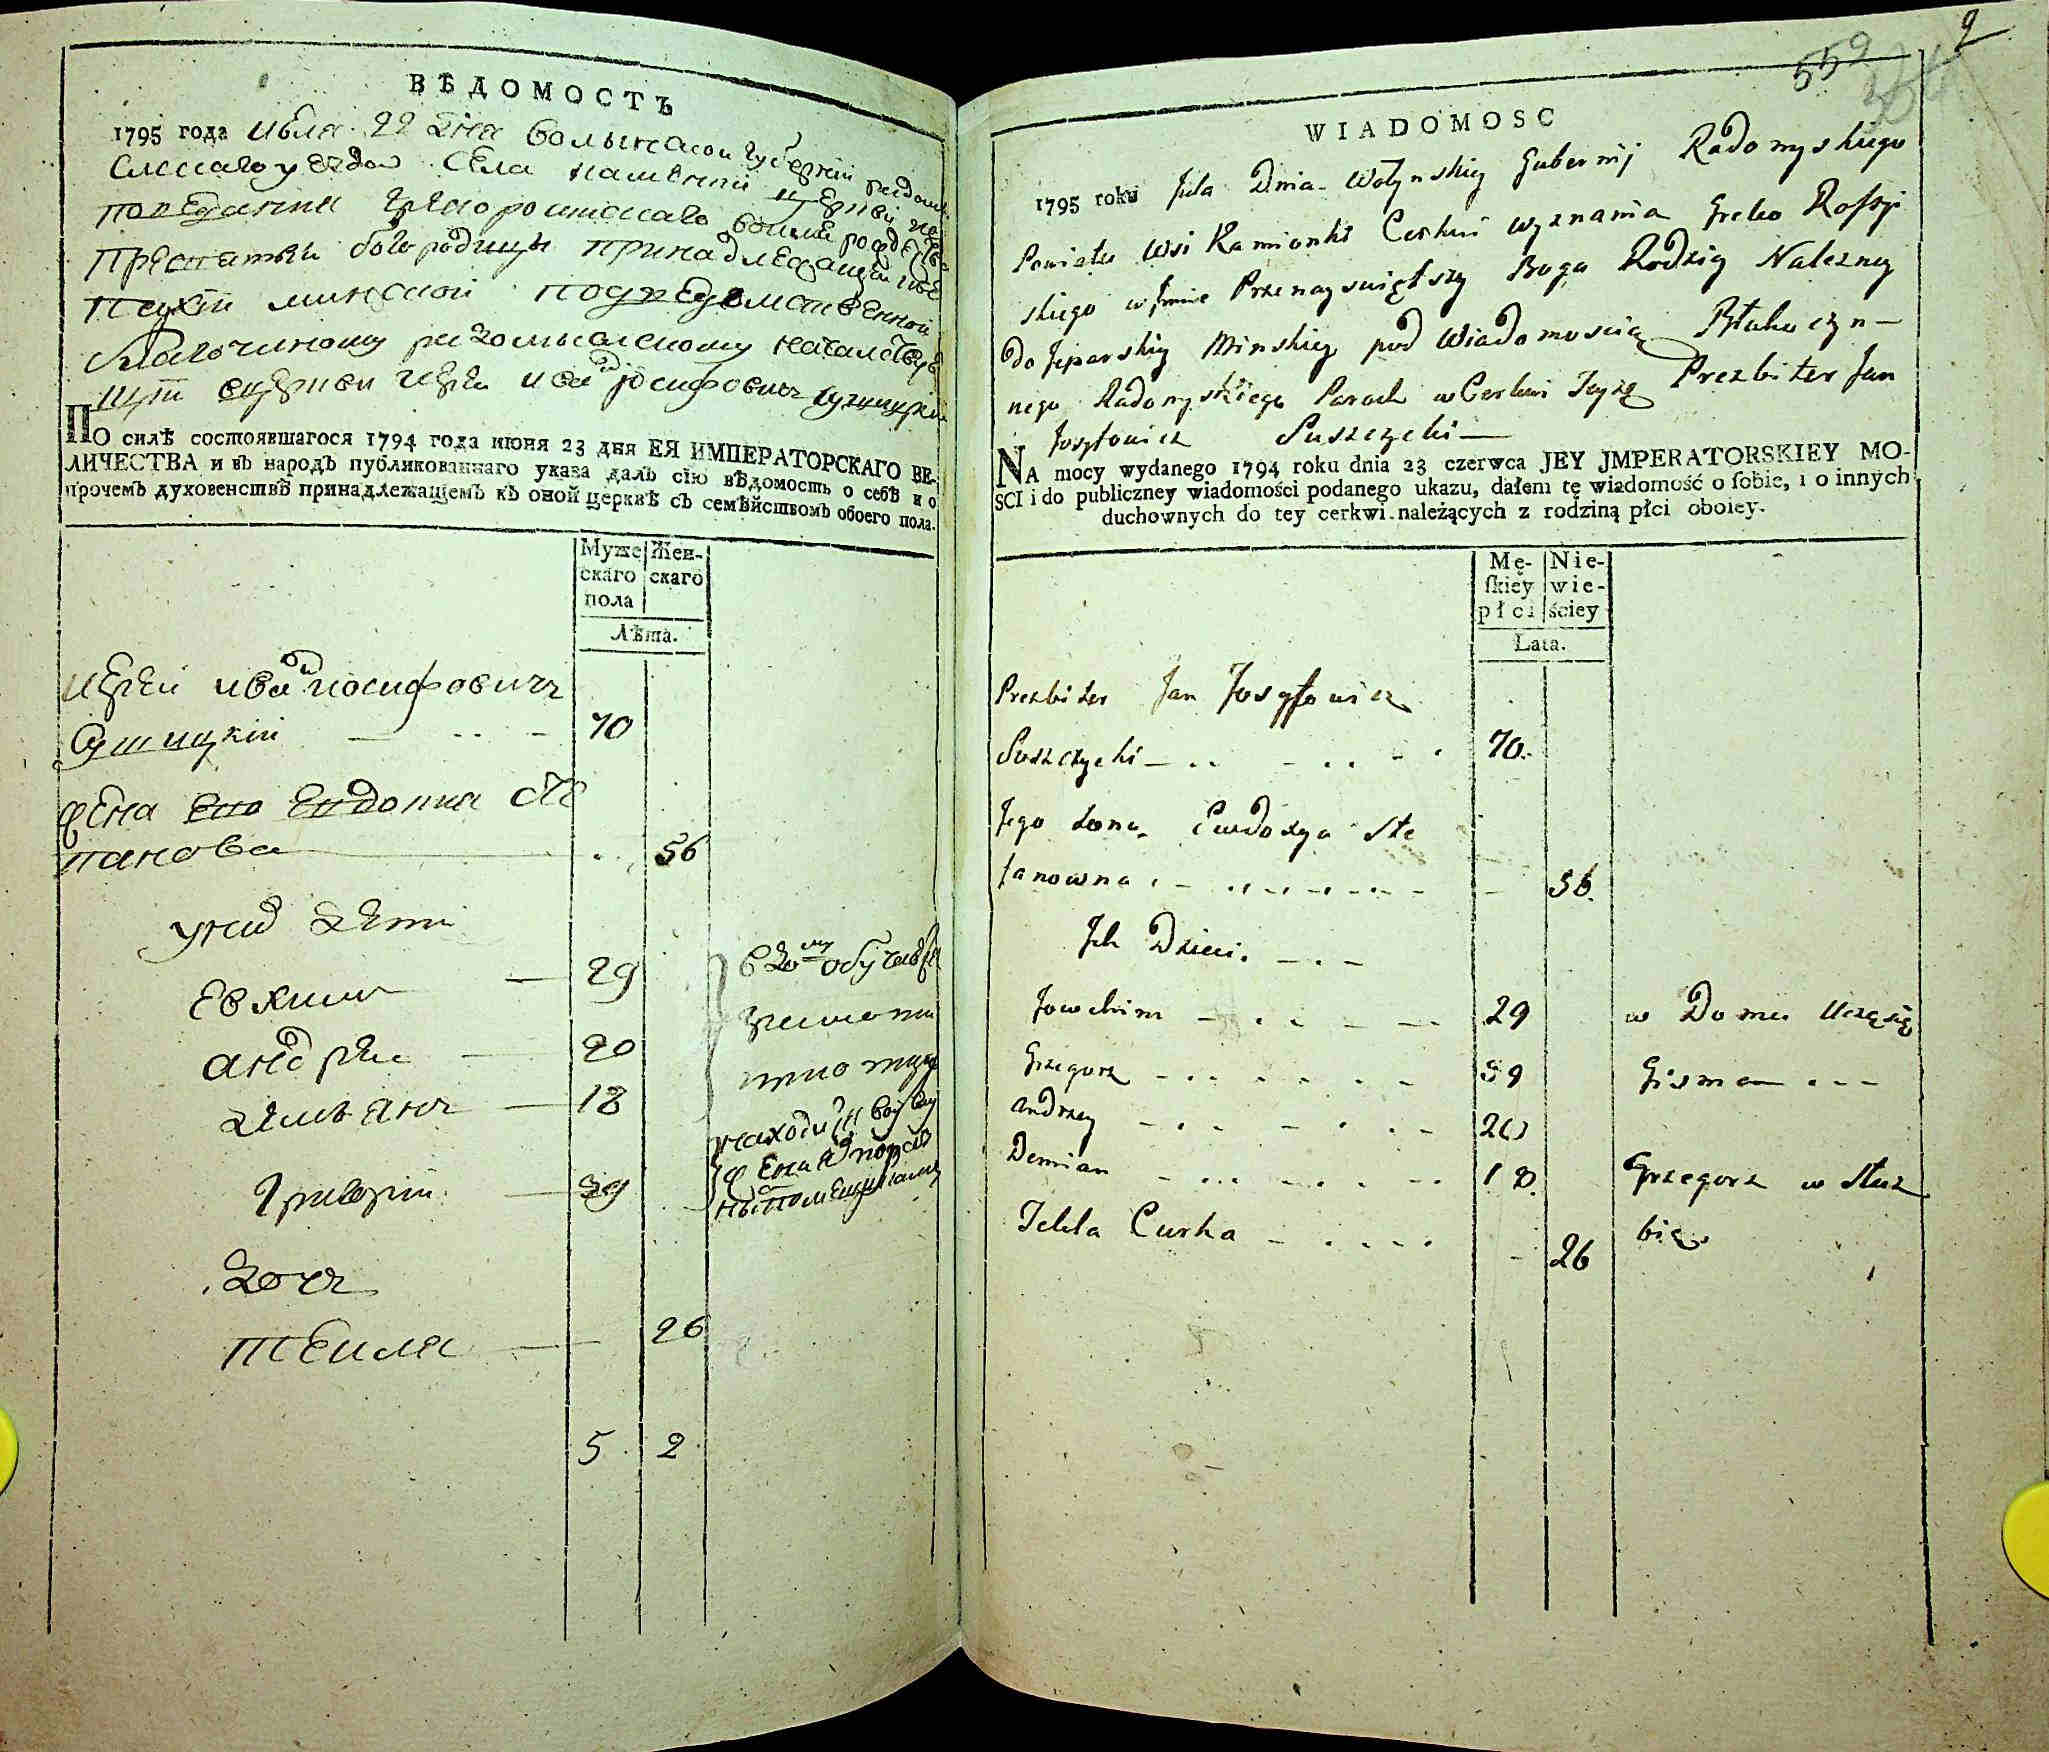 ВѢДОМОСТЬ
1795 года июля 22 дня волынской губернїи радом
села церкви
грекороссискаго во имя рождества
Пресвятыя богородицы принадлежащей
минской подведомственной
благочинному радомысльскому
церкви иерей иван іосифовичъ сушицкій
ПО силѣ состоявшагося 1794 года июня 23 дня ЕЯ ИМПЕРАТОРСКАГО ВЕ-
ЛИЧЕСТВА и въ народъ публикованнаго указа далъ сїю вѣдомость о себѣ и о
прочемъ духовенствѣ принадлежащемъ къ оной церквѣ съ семѣйствомъ обоего пола.
Муже Жен-
скаго скаго
пола
Лѣта.
иерей иван иосифовичъ
Сушицкій 70
жена его Евдокия Сте
панова 56
у них дети
Евхим 29
андрей 20
дамъянъ 18
Григорий 39
дочь
текла 26
5 2
559
2
WIADOMOSC
1795 roku Jula Dnia Wołynskiey Gubernij Radomyskiego
Powiatu Wsi Kamionki Cerkwi wyznania Greko Rossyi
skiego w Jmie Przenayswiętszy Boga Rodzicy Nalezney
do Jeparskiey Minskiey pod Wiadomoscią Błahoczyn-
nego Radomyskiego Paroch w Cerkwi Teyże Prezbiter Jan
Jozyfowicz Suszczycki
NA mocy wydanego 1794 roku dnia 23 czerwca JEY JMPERATORSKIEY MO-
SCI i do publiczney wiadomości podanego ukazu, dałem tę wiadomość o sobie, i o innych
duchownych do tey cerkwi należących z rodziną płci oboiey.
Mę- Nie-
skiey wie-
płci ściey
Lata.
Prezbiter Jan Josyfowicz
Suszczycki 70.
Jego żona Ewdoxya Ste
fanowna 56.
Jch Dzieci.
Jowchim 29 w Domu Uczą się
Grzegorz 39 Pisma
Andrzey 20
Demian 18. Grzegorz w służ
Tekla Curka 26 bie.